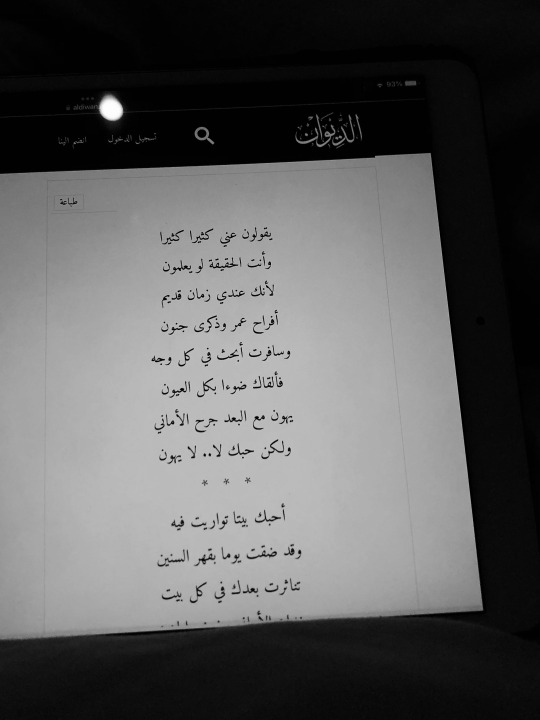 93%
الديوان
تسجيل الدخول
انضم الينا
طباعة
يقولون عني كثيرا كثيرا
وأنت الحقيقة لو يعلمون
لأنك عندي زمان قديم
أفراح عمر وذكرى جنون
وسافرت أبحث في كل وجه
فألقاك ضوءا بكل العيون
يهون مع البعد جرح الأماني
ولكن حبك لا.. لا يهون
* * *
أحبك بيتا تواريت فيه
وقد ضقت يوما بقهر السنين
تناثرت بعدك في كل بيت